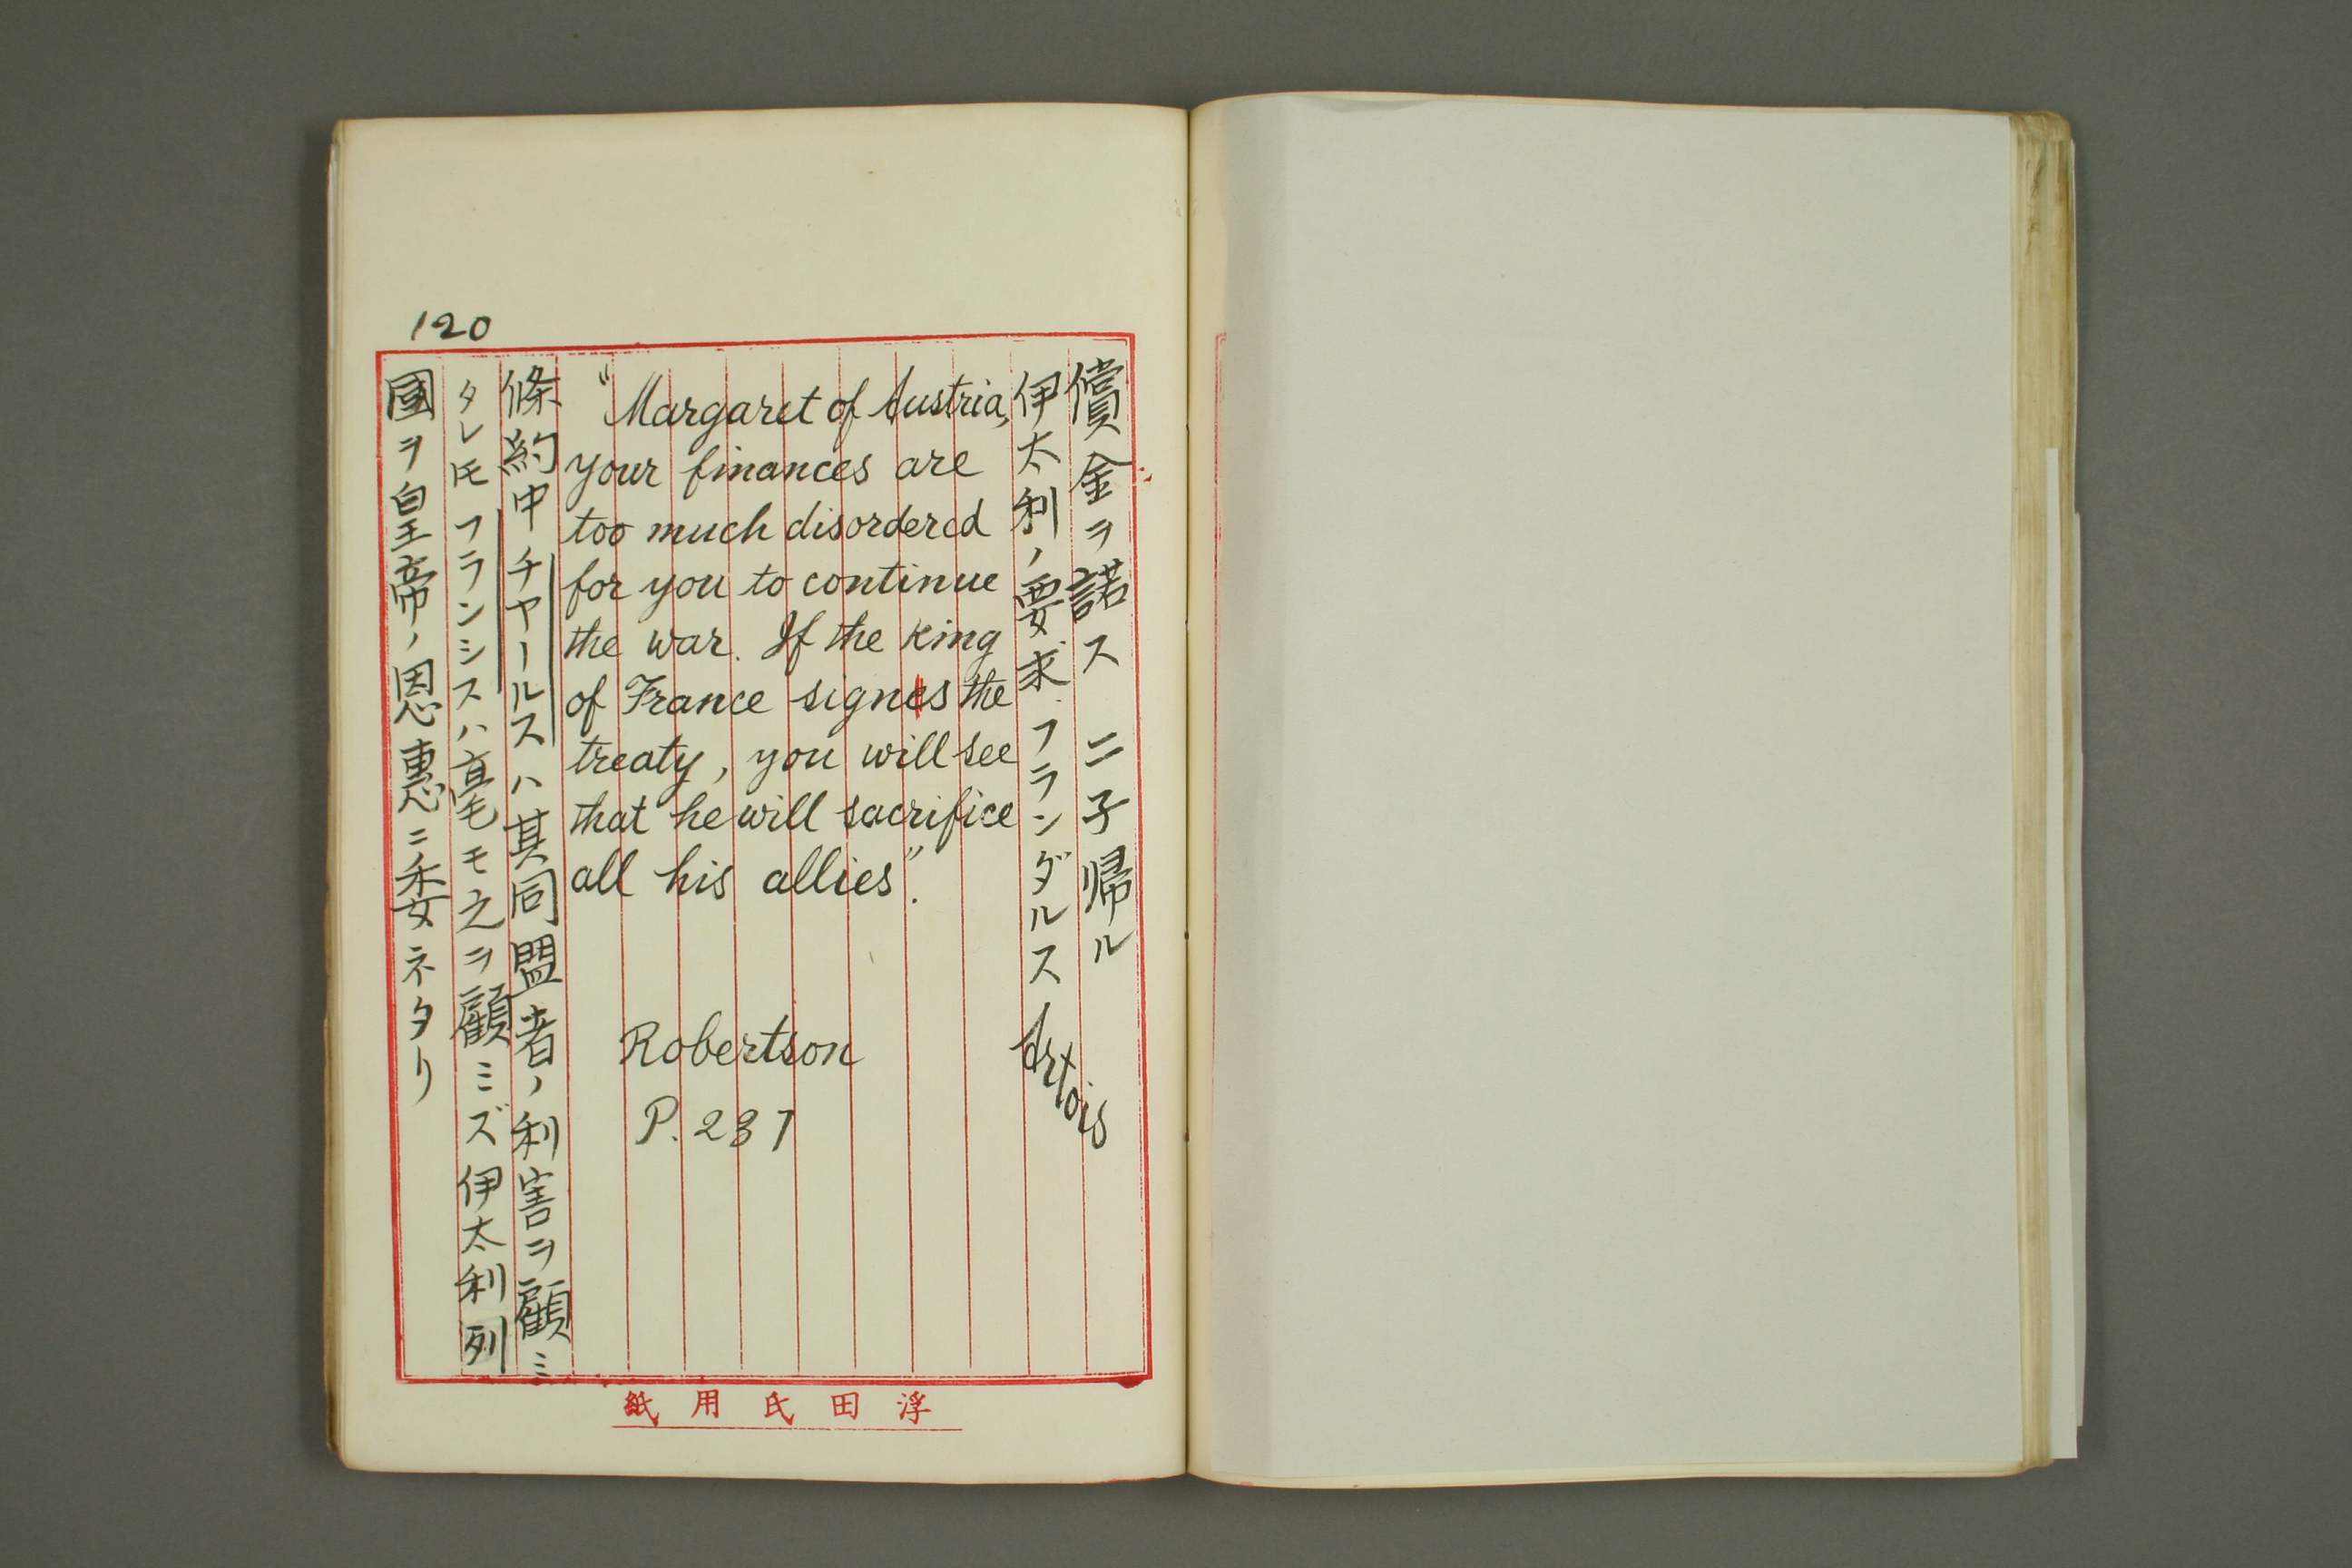 120
償金ヲ諾ス 二子帰ル
伊太利ノ要求 フランダルス Artois
"Margaret of Austria,
your finances are
too much disordered
for you to continue
the war. If the king
of France signes the
treaty, you will see
that he will sacrifice
all his allies".
Robertson
P. 237
條約中チャールスハ其同盟者ノ利害ヲ顧ミ
タレ𪜈フランシスハ毫モ之ヲ顧ミズ伊太利列
國ヲ皇帝ノ恩惠ニ委ネタリ
浮田氏用紙